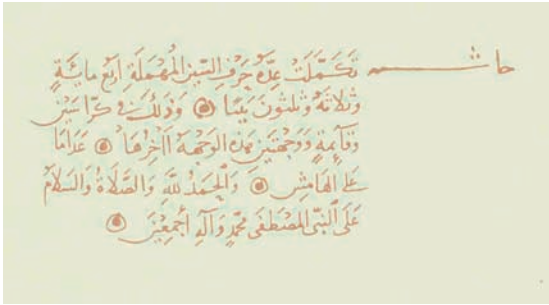 حاشـــــية تكملت عدة حرف السين المهملة اربع مائة
وثلاثة وثلثون بيتا ۞ وذلك في كراسين
وقايمة ووجهتين هذه الوجهة اخرها ۞ عداما
على الهامش ۞ والحمد لله والصلاة والسلام
على النبي المصطفى محمد وآله أجمعين ۞